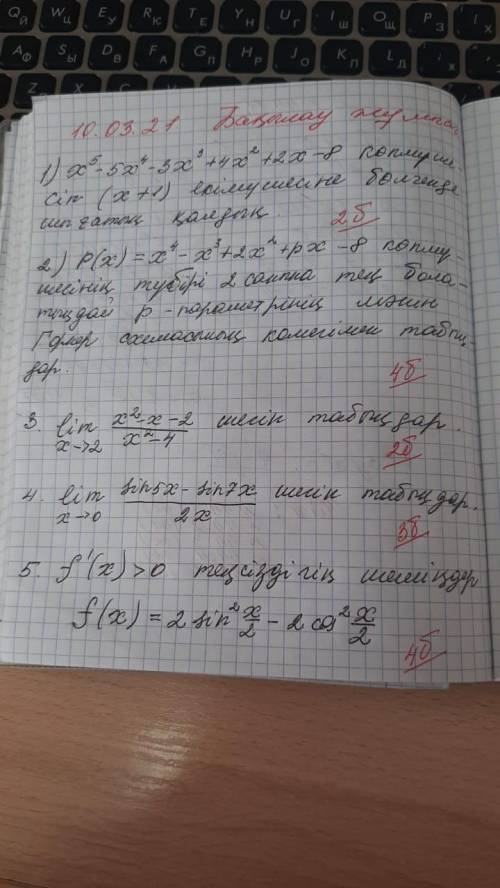 10.03.21 Бақылау жұмысы
1) x⁵-5x⁴-3x³+4x²+2x-8 көпмүше
сін (x+1) екімүшесіне бөлгенде
шығатын қалдық. 2б
2) P(x) = x⁴ - x³ + 2x² + px - 8 көпмү-
шесінің түбірі 2 санына тең бола-
тындай p - параметрінің мәнін
Горнер схемасының көмегімен табың
дар. 4б
3. lim x→2 x²-x-2 / x²-4 шегін табыңдар. 2б
4. lim x→0 sin5x - sin7x / 2x шегін табыңдар. 3б
5. f'(x) > 0 теңсіздігін шешіңдер
f(x) = 2 sin² x/2 - 2 cos² x/2 4б